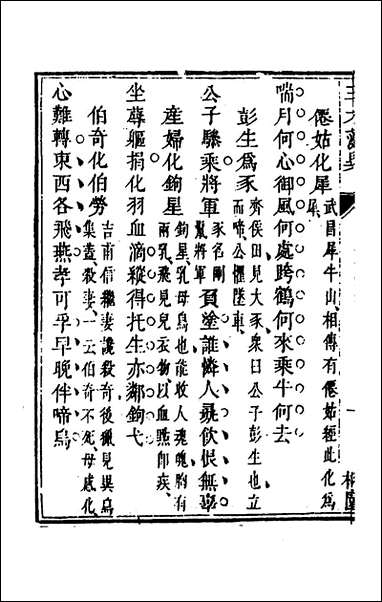 僊姑化犀
武昌犀牛山相傳有僊姑經此化爲
犀
喘月何心御風何處跨鶴何來乘牛何去
彭生爲豕
齊侯田見大豕衆曰公子彭生也立
而啼公懼墜車
公子驂乘將軍
豕名剛
鬣將軍
負塗誰憐人㲋飲恨無辜
産婦化鉤星
鉤星乳母鳥也能收人魂魄胸有
兩乳飛見兒衣物以血點即疾
坐蓐軀捐化羽血滴縱得托生亦鄰鉤弋
伯奇化伯勞
吉甫信繼妻讒殺奇後獵見異鳥
集蓋殺妻一云伯奇不死母感化
心難轉東西各飛燕孝可乎早晚伴啼烏